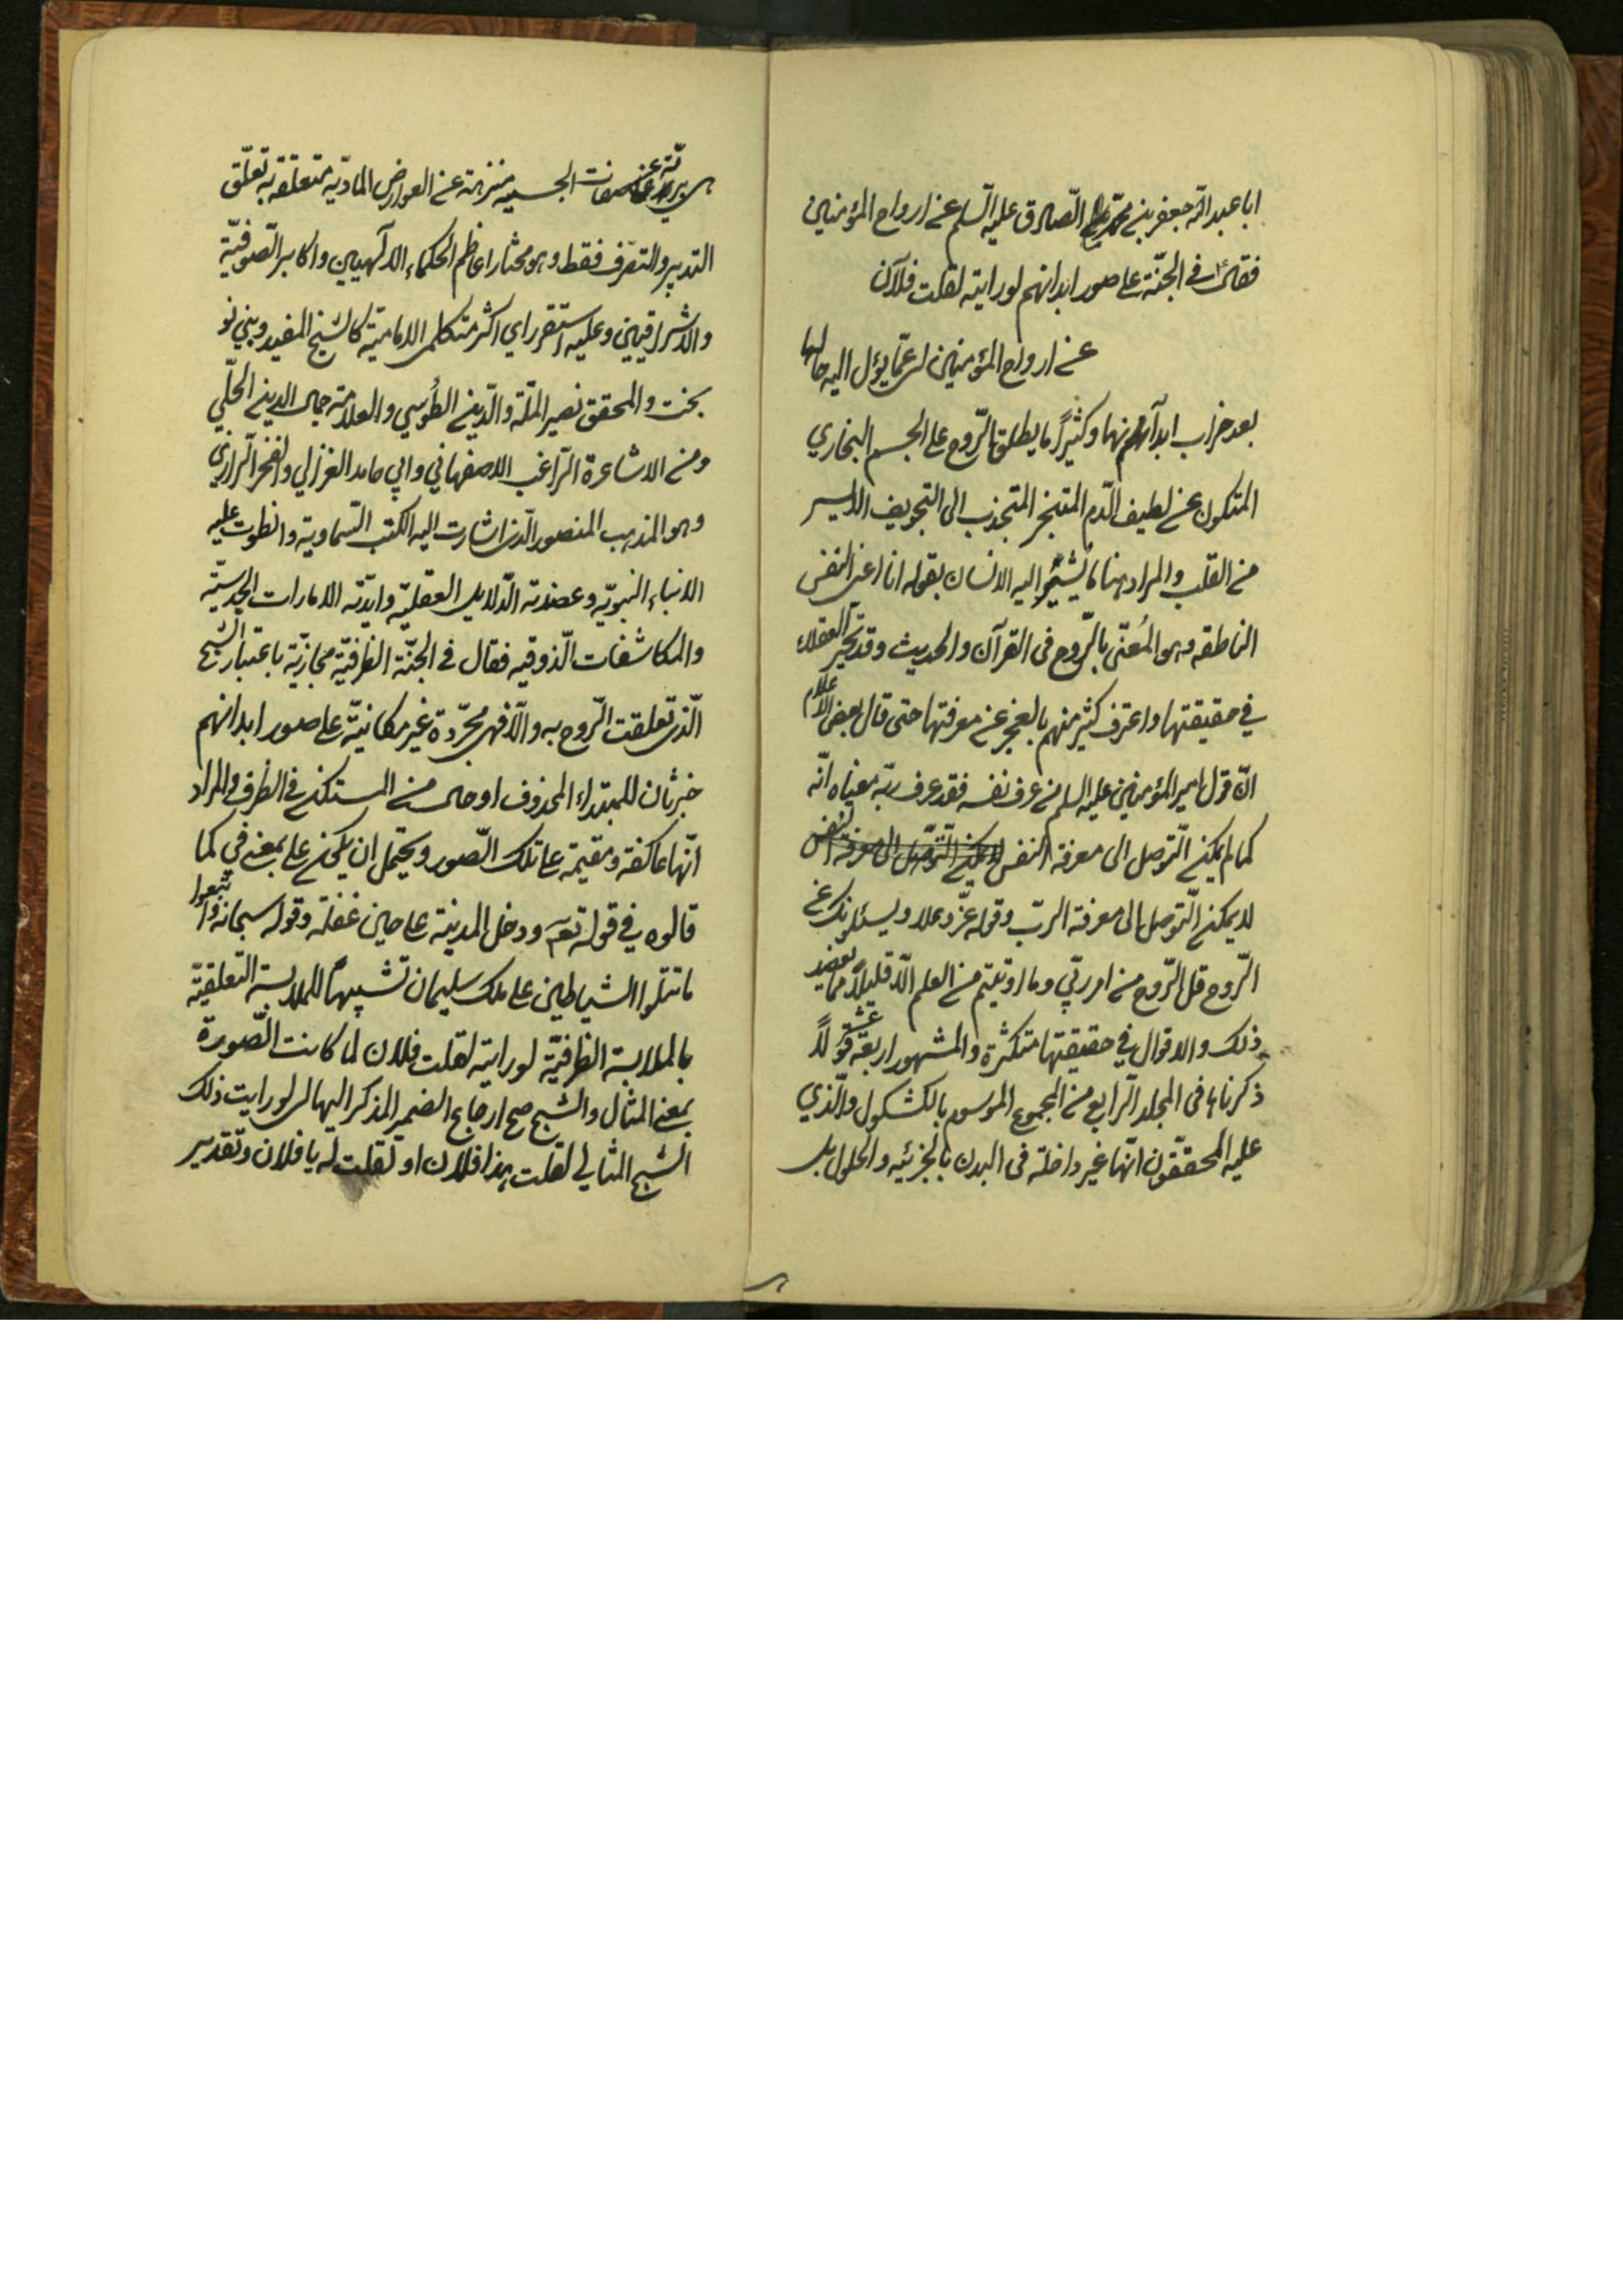 ابا عبد الله جعفر بن محمد الصّادق عليه السّلم عن ارواح المؤمنين
فقال في الجنّة على صور ابدانهم لو رايته لقلت فلان
عن ارواح المؤمنين اى عمّا يؤل اليه حالها
بعد خراب ابدانهم وكثيرًا ما يطلق الرّوح على الجسم البخاري
المتكون عن لطيف الدّم المتبخر المتجذب الى التجويف الايسر
من القلب والمراد بهنا ما يشير اليه الانسان بقوله انا اعنى النفس
الناطقه وهو المُعنّى بالرّوح فى القرآن والحديث وقد تحير العقلاء
في حقيقتها واعترف كثير منهم بالعجز عن معرفتها حتى قال بعض الاعلام
انّ قول امير المؤمنين عليه السلم من عرف نفسه فقد عرف ربّه معناه انّه
كما لم يمكن التّوصل الى معرفة النفس لا يمكن التّوصّل الى معرفة النفس
لا يمكن التّوصل الى معرفة الربّ وقوله عزّ وعلا ويسئلونك عن
الرّوح قل الرّوح من امر ربّي وما اوتيتم من العلم الّا قليلاً مما يعضد
ذلك والاقوال في حقيقتها متكثّرة والمشهور اربعة عشر قولاً
ذكرناها فى المجلد الرّابع من المجموع الموسوم بالكشكول والّذي
عليه المحقّقون انّها غير داخلة فى البدن بالجزئيه والحلول بل
هى بريّة عن صفات الجسميه منزهة عن العوارض الماديّه متعلقه به تعلّق
التدبير والتصّرف فقط وهو مختار اعاظم الحكماء الالهيين واكابر الصّوفيّة
والاشراقيين وعليه استقر راي اكثر متكلمى الاماميّة كالشيخ المفيد وبني نو
بخت والمحقق نصير الملّة والدّين الطُوسي والعلامة جمال الدين الحلّي
ومن الاشاعرة الرّاغب الاصفهاني وابي حامد الغزالي والفخر الرّازي
وهو المذهب المنصور الّذى اشارت اليه الكتب السّماوية وانطوت عليه
الانباء النبويّه وعضدته الدّلايل العقليّه وايّدته الامارات الحدسيّه
والمكاشفات الذّوقيه فقال في الجنّة الظرفيّة مجازيّة باعتبار الشبح
الّذى تعلقت الرّوح به والّا فهى مجرّدة غير مكانيّة على صور ابدانهم
خبر ثان للمبتداء المحذوف او حال من المستكن في الظرف والمراد
انّها عاكفة ومقيمة على تلك الصّور ويحتمل ان يكون على بمعنى في كما
قالوه في قوله تعم ودخل المدينة على حين غفلة وقوله سبحانه واتّبعوا
ما تتلوا الشياطين على ملك سليمان تشبيهًا للملابسة التعلقيّة
بالملابسة الظرفيّة لو رايته لقلت فلان لما كانت الصّورة
بمعنى المثال والشبح صح ارجاع الضمير المذكر اليها اى لو رايت ذلك
الشبح المثالي لقلت هذا فلان او لقلت له يا فلان وتقدير